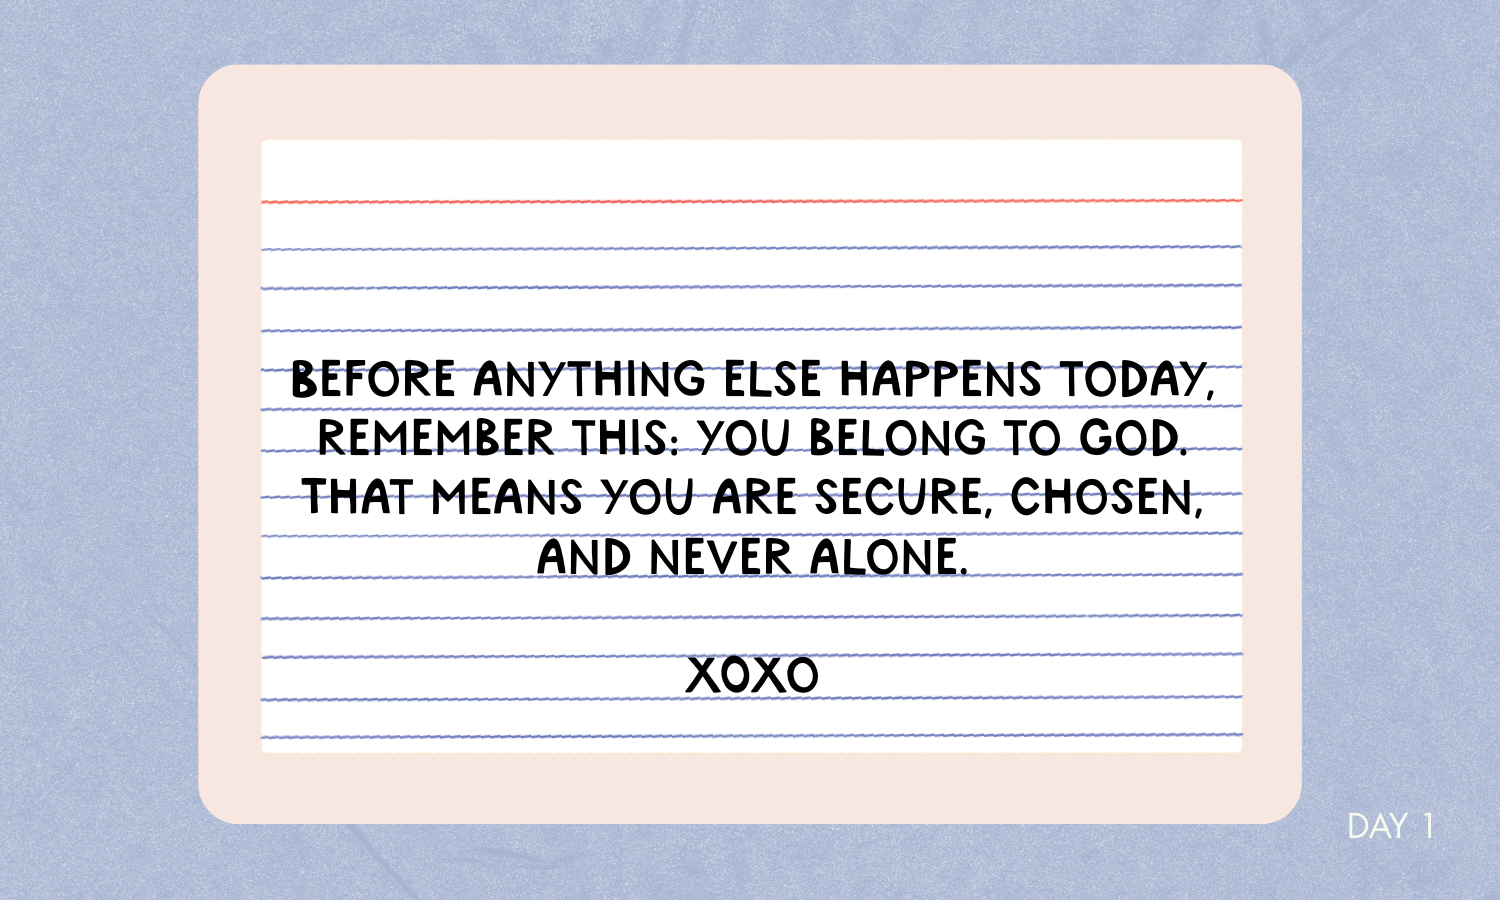 BEFORE ANYTHING ELSE HAPPENS TODAY,
REMEMBER THIS: YOU BELONG TO GOD.
THAT MEANS YOU ARE SECURE, CHOSEN,
AND NEVER ALONE.
XOXO
DAY 1